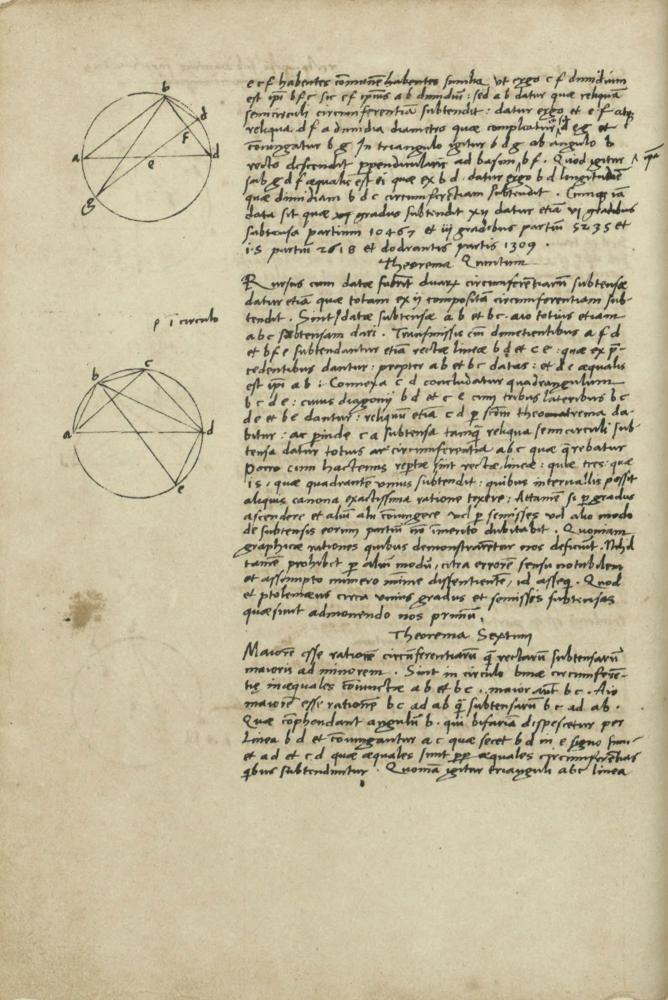 b
d
f
a
e
d
g
e c f habentes comunem habentes similia ut ergo c f dimidium
est ipsi b f c sic e f ipsius a b dimidiũ: sed a b datur quæ reliquã
semicirculi circumferentiã subtendit: datur ergo et e f atqz
reliqua d f a dimidia diametro quæ compleatur d e g et
coniungatur b g. In triangulo igitur b d g ab angulo b
recto descendit ppendicularis ad basim b f. Quod igitur ʌ
sub g d f æqualis est ei quæ ex b d. datur ergo b d longitudine
quæ dimidiam b d c circumferẽtiam subtendit. Cumqz iã
data sit quæ xij gradus subtendit xij datur etiã vj gradibus
subtensa partium 10467 et iij gradibus partiũ 5235 et
i s partiũ 2618 et dodrantis partis 1309.
Theorema Quintum
Rursus cum datæ fuerint duarum circumferentiarũ subtensæ
datur etiã quæ totam ex ij compositã circumferentiam sub-
tendit. Sint datæ subtensæ a b et b c. aio totius etiam
a b c subtensam dari. Transmissis eni dimetientibus a f d
et b f e subtendantur etiã rectæ lineæ b d et c e: quæ ex p̃-
cedentibus dantur: propter a b et b c datas: et d e æqualis
est ipi a b: Connexa c d concludatur quadrangulum
b c d e: cuius diagonij b d et c e cum tribus lateribus b c
d e et b e dantur: reliquũ etiã c d p scdm theorema da-
bitur: ac pinde c a subtensa tamqz reliqua semicirculi sub-
tensa datur totius circumferentiæ a b c quæ q̃rebatur
Porro cum hactenus reptæ sint rectæ lineæ: quæ tres: quæ
i s: quæ quadrantẽ unius subtendit: quibus interuallis possit
aliquis canona exactissima ratione texere: Attamẽ si p gradus
ascendere et aliũ alii coniungere vel p semisses vel alio modo
de subtensis eorum partiũ nõ ĩmerito dubitabit. Quoniam
graphicæ rationes quibus demonstrarẽtur nos deficiũt. Nihil
tamẽ prohibet p aliũ modũ, citra errorẽ sensu notabilem
et assumpto numero minime dissentientẽ, id asseq. Quod
et ptolemæus circa unius gradus et semissis subtensas
quæsiuit admonendo nos primũ.
p ĩ circulo
b
c
a
d
e
Theorema Sextum
Maiorẽ esse rationẽ circũferentiarũ q̃ rectarũ subtensarũ
maioris ad minorem. Sint in circulo binæ circumferẽ-
tiæ inæquales coniunctæ a b et b c. maior aũt b c. Aio
maiorẽ esse rationẽ b c ad a b q̃ subtensarũ b c ad a b.
Quæ cõphendant angulũ b. qui bifariã dispescetur per
lineã b d et coniungantur a c quæ secet b d in e signo
et a d et c d quæ æquales sunt pp æquales circumferẽtias
qibus subtenduntur. Quoniã igitur trianguli a b c linea